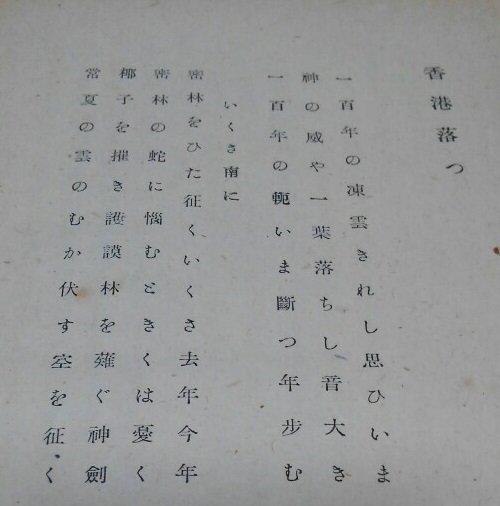 香港落つ
一百年の凍雲きれし思ひいま
神の威や一葉落ちし音大き
一百年の軛いま斷つ年步む
いくさ南に
密林をひた征くいくさ去年今年
密林の蛇に惱むときくは憂く
椰子を摧き護謨林を薙ぐ神劍
常夏の雲のむか伏す空を征く